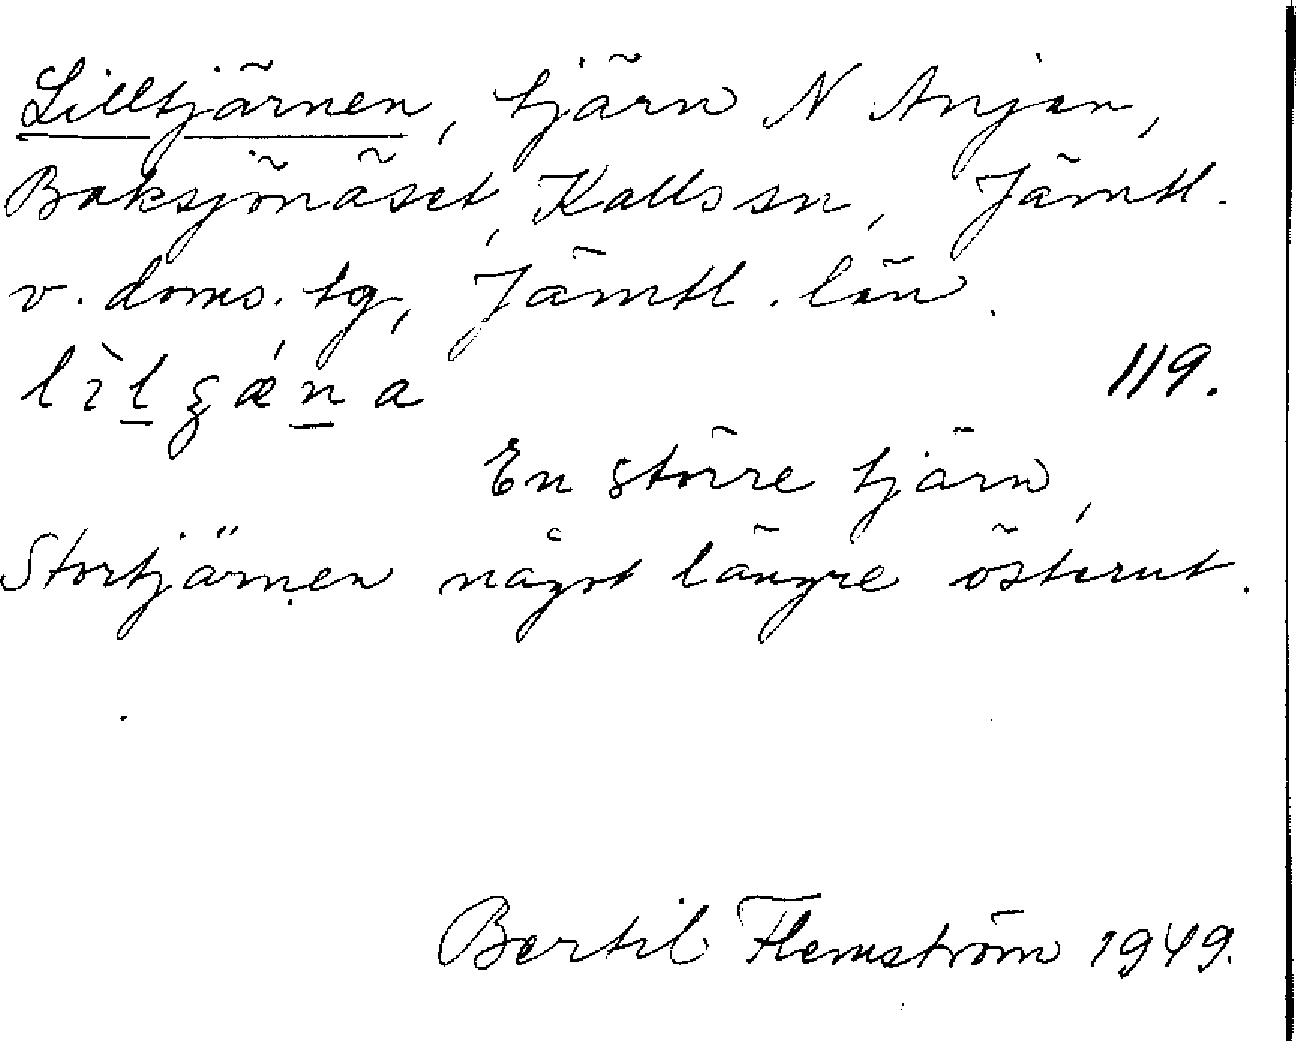 Lilltjärnen, tjärn N Anjan,
Baksjönäset, Kalls sn, Jämtl.
v. doms. tg, Jämtl. län.
119.
En större tjärn,
Stortjärnen något längre österut.
Bertil Flemström 1949.